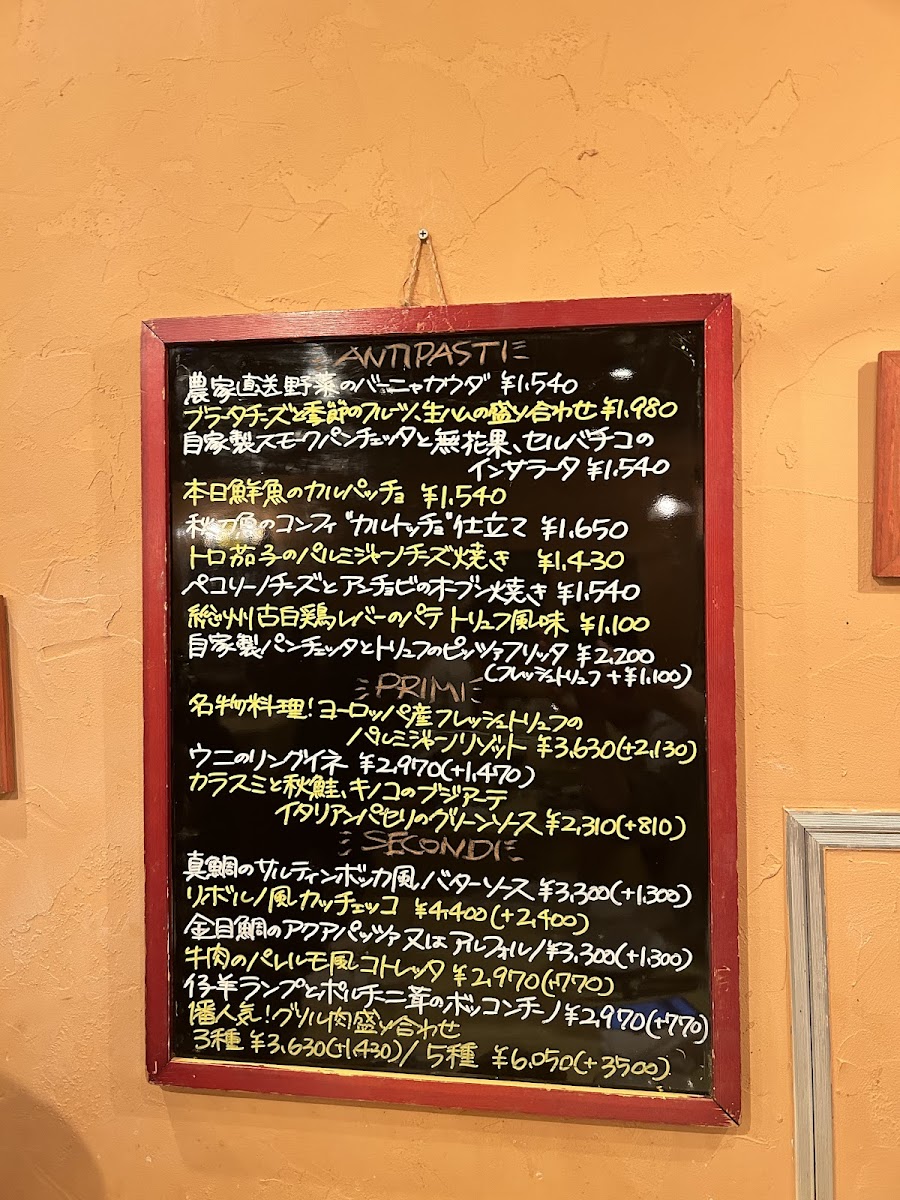 ANTIPASTI
農家直送野菜のバーニャカウダ ¥1.540
ブラータチーズと季節のフルーツ、生ハムの盛り合わせ ¥1.980
自家製スモークパンチェッタと無花果、セルバチコの
インサラータ ¥1.540
本日鮮魚のカルパッチョ ¥1.540
秋刀魚のコンフィ "カルトッチョ"仕立て ¥1.650
トロ茄子のパルミジャーノチーズ焼き ¥1.430
ペコリーノチーズとアンチョビのオーブン焼き ¥1.540
総州古白鶏レバーのパテ トリュフ風味 ¥1.100
自家製パンチェッタとトリュフのピッツァフリッタ ¥2.200
(フレッシュトリュフ +¥1.100)
PRIMI
名物料理!ヨーロッパ産フレッシュトリュフの
パルミジャーノリゾット ¥3,630(+2,130)
ウニのリングイネ ¥2,970(+1,470)
カラスミと秋鮭、キノコのブジアーテ
イタリアンパセリのグリーンソース ¥2,310(+810)
SECONDI
真鯛のサルティンボッカ風バターソース ¥3,300(+1.300)
リボルノ風カッチェッコ ¥4,400(+2,400)
金目鯛のアクアパッツァ又はアルフォルノ ¥3,300(+1.300)
牛肉のパレルモ風コトレッタ ¥2,970(+770)
仔羊ランプとポルチーニ茸のボッコンチーノ ¥2,970(+770)
1番人気!グリル肉盛り合わせ
3種 ¥3,630(+1,430) / 5種 ¥6,050(+3500)